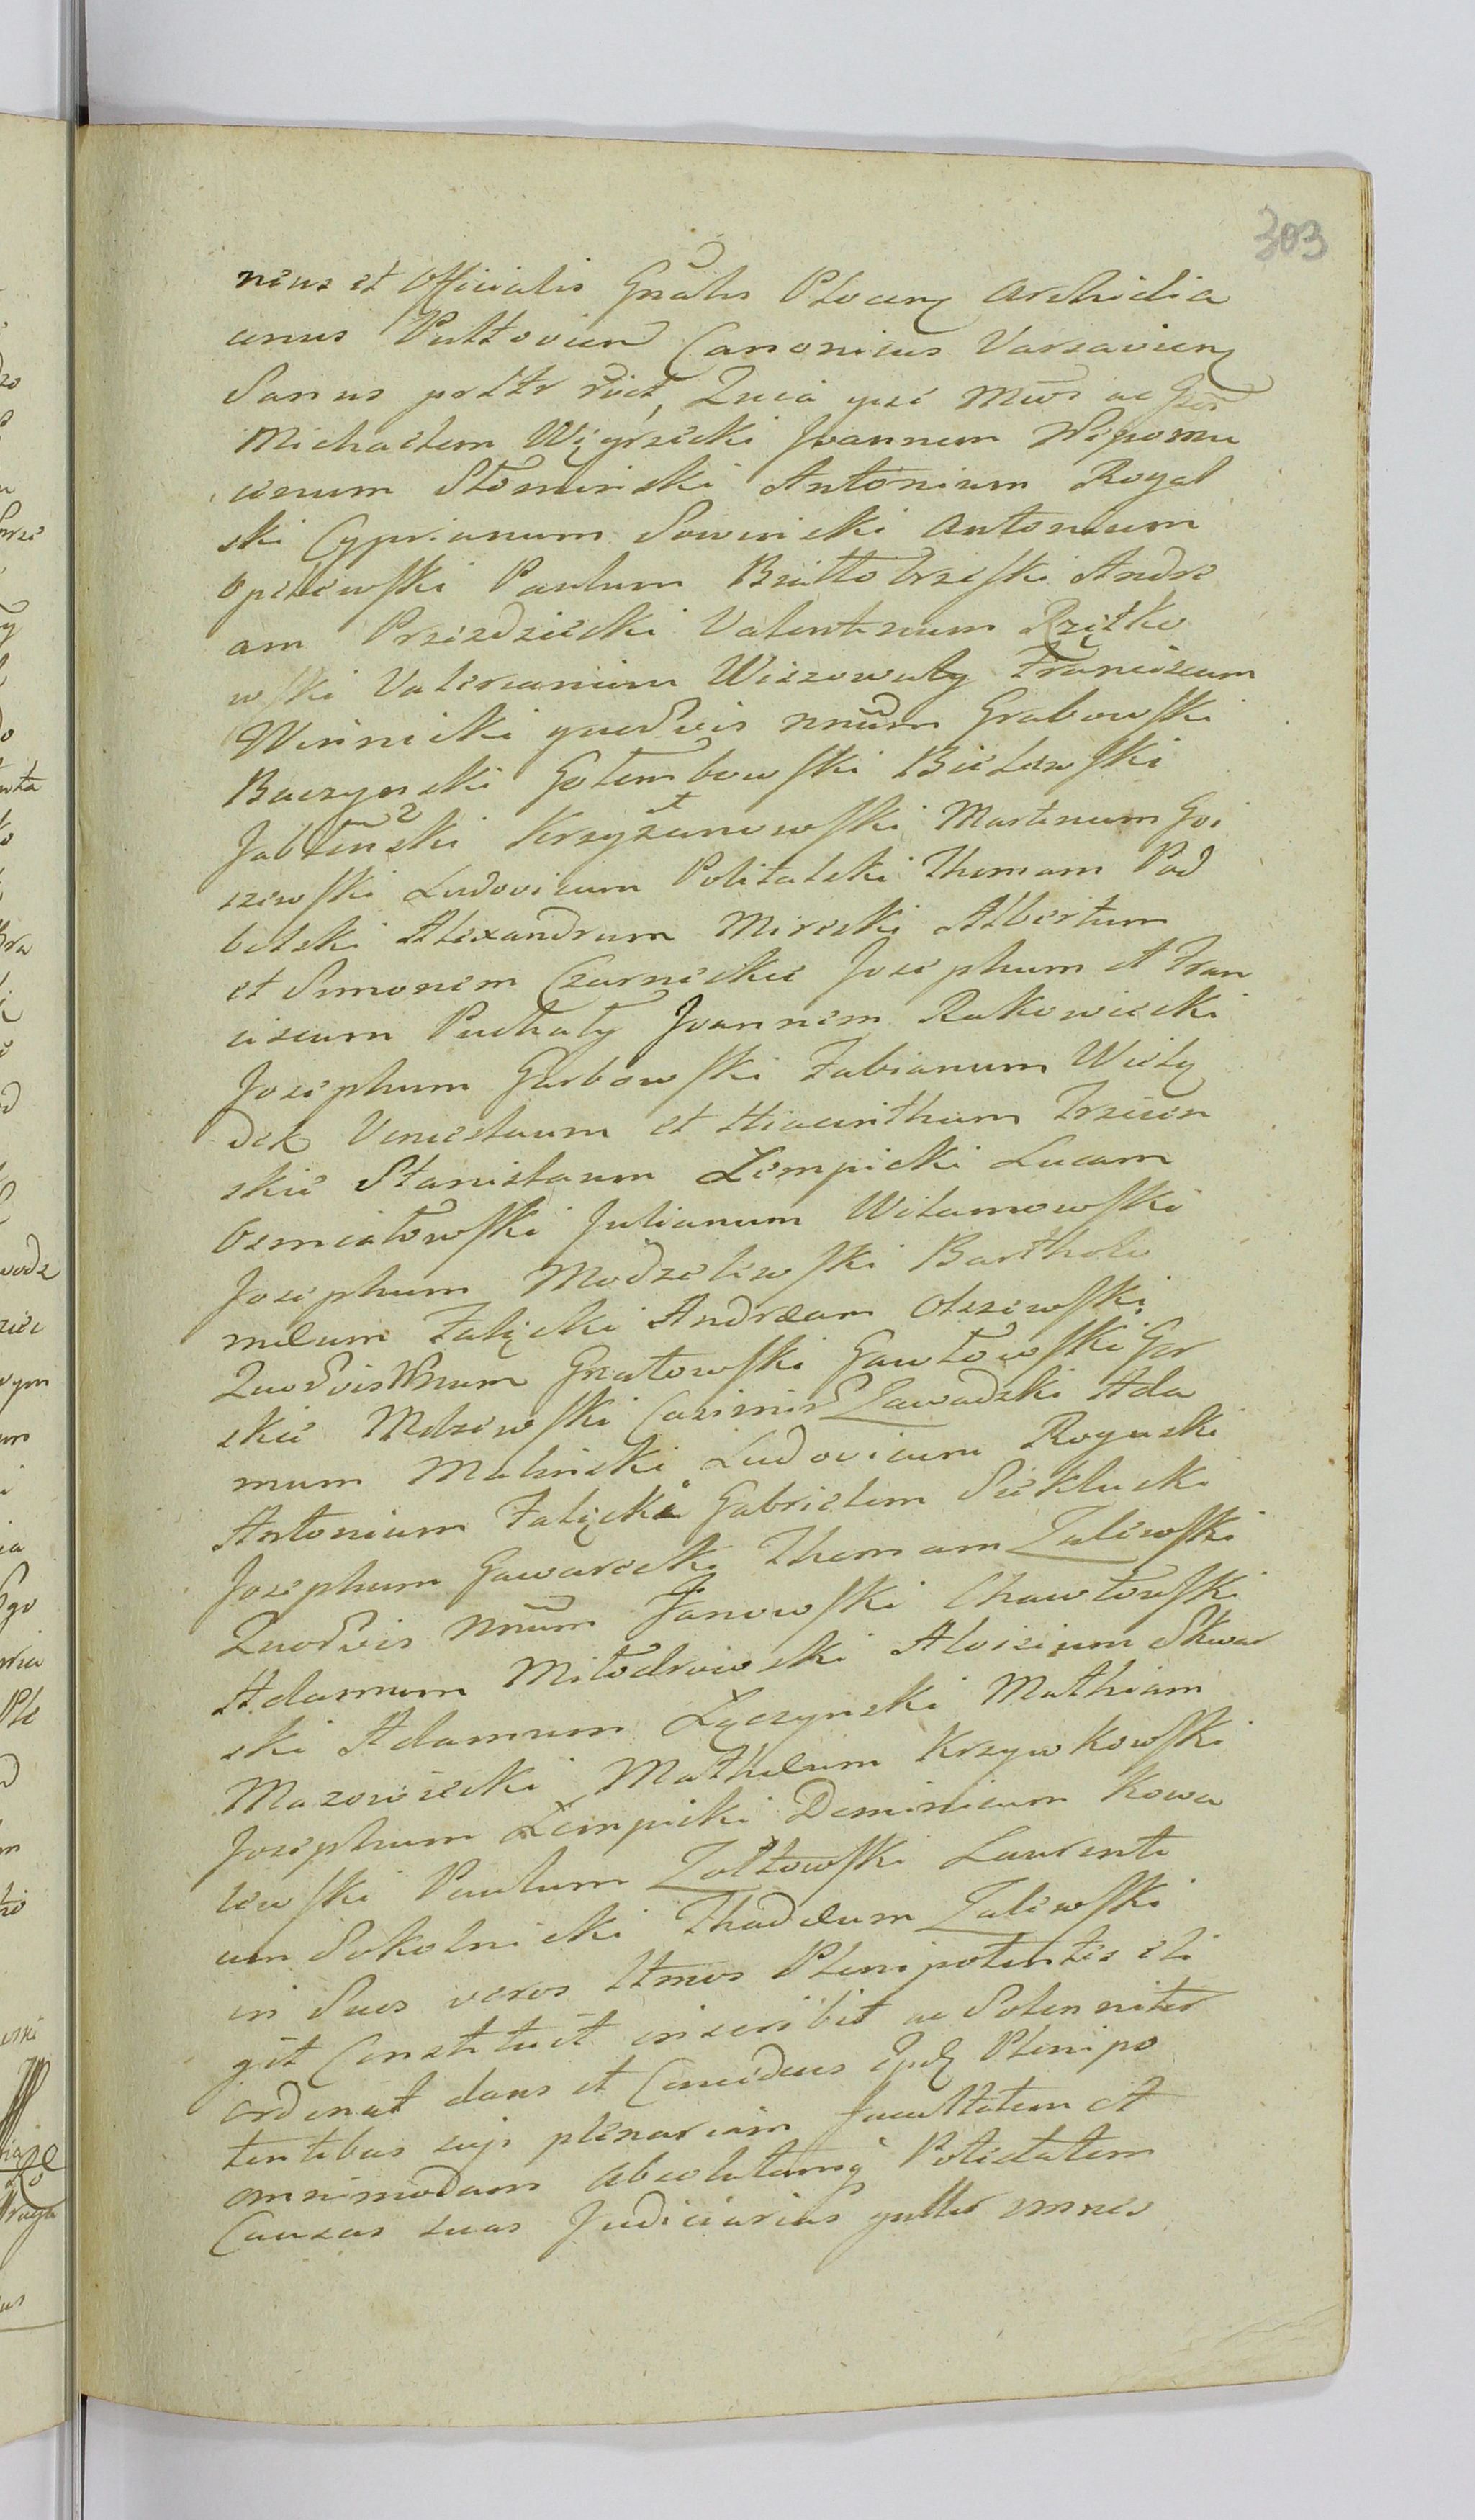 303
neus et Officialis Gnalis Plocen Archidia
conus Pultovien Canonicus Varsavien
Sanus Quia ipse
Michaelem Węgrzecki Joannem Nepomu
cenum Słominski Antonium Rogal
ski Cyprianum Sowinski Antonium
Opelewski Paulum Białłobrzeski Andre
am Przezdziecki Valentinum Rzętko
wski Valerianum Wiszowaty Franciscum
Winnicki quodvis nnum Grabowski
Baczynski Gołembowski Bielawski
Jabłonski Krzyżanowski Martinum Goi
szewski Ludovicum Politalski Thomam Pod
belski Alexandrum Mirecki Albertum
et Simonem Czarnieckie Josephum et Fran
ciscum Puchały Joannem Rakowiecki
Josephum Garbowski Fabianum Wielą
dek Venceslaum et Hiacinthum Trzcien
skie Stanislaum Lempicki Lucam
Osmiałowski Julianum Wilamowski
Josephum Modzelewski Bartholo
meum Falęcki Andream Olszewski
Quodvis Nnum Gzatowski Gawłowski Gor
skie Mdzewski Casimir Zawadzki Ada
mum Malinski Ludovicum Roguski
Antonium Falęcki Gabrielem Sieklucki
Josephum Gawarecki Thomam Zalewski
Quodvis nnum Janowski Chawłowski
Adamum Miłodrowski Aloisium Skwar
ski Adamum Łączynski Mathiam
Mazowiecki Matheum Krzywkowski
Josephum Lempicki Dominicum Kowa
lewski Paulum Zołtowski Laurenti
um Sokolnicki Thadeum Zalewski
in Suos veros Ltmos Plenipotentes eli
git Constituit inscribit ac Solenniter
ordinat dans et Concedens Plenipo
tentibus suis plenariam facultatem et
omnimodam absolutamq Potestatem
Causas suas Judiciarias omnes